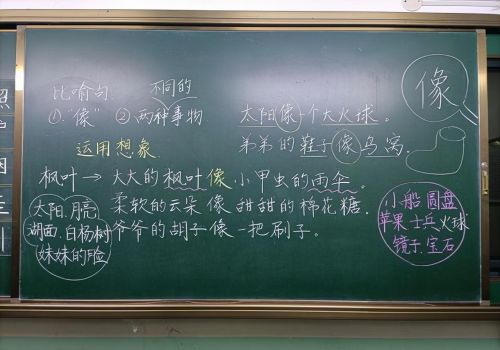 比喻句
不同的
①."像" ②两种事物
运用想象
太阳像一个大火球。
弟弟的鞋子像鸟窝.
像
枫叶→大大的枫叶像小甲虫的雨伞。
柔软的云朵像甜甜的棉花糖.
爷爷的胡子像一把刷子。
太阳.月亮
湖面.白杨树
妹妹的脸
小船 圆盘
苹果 士兵 火球
镜子.宝石